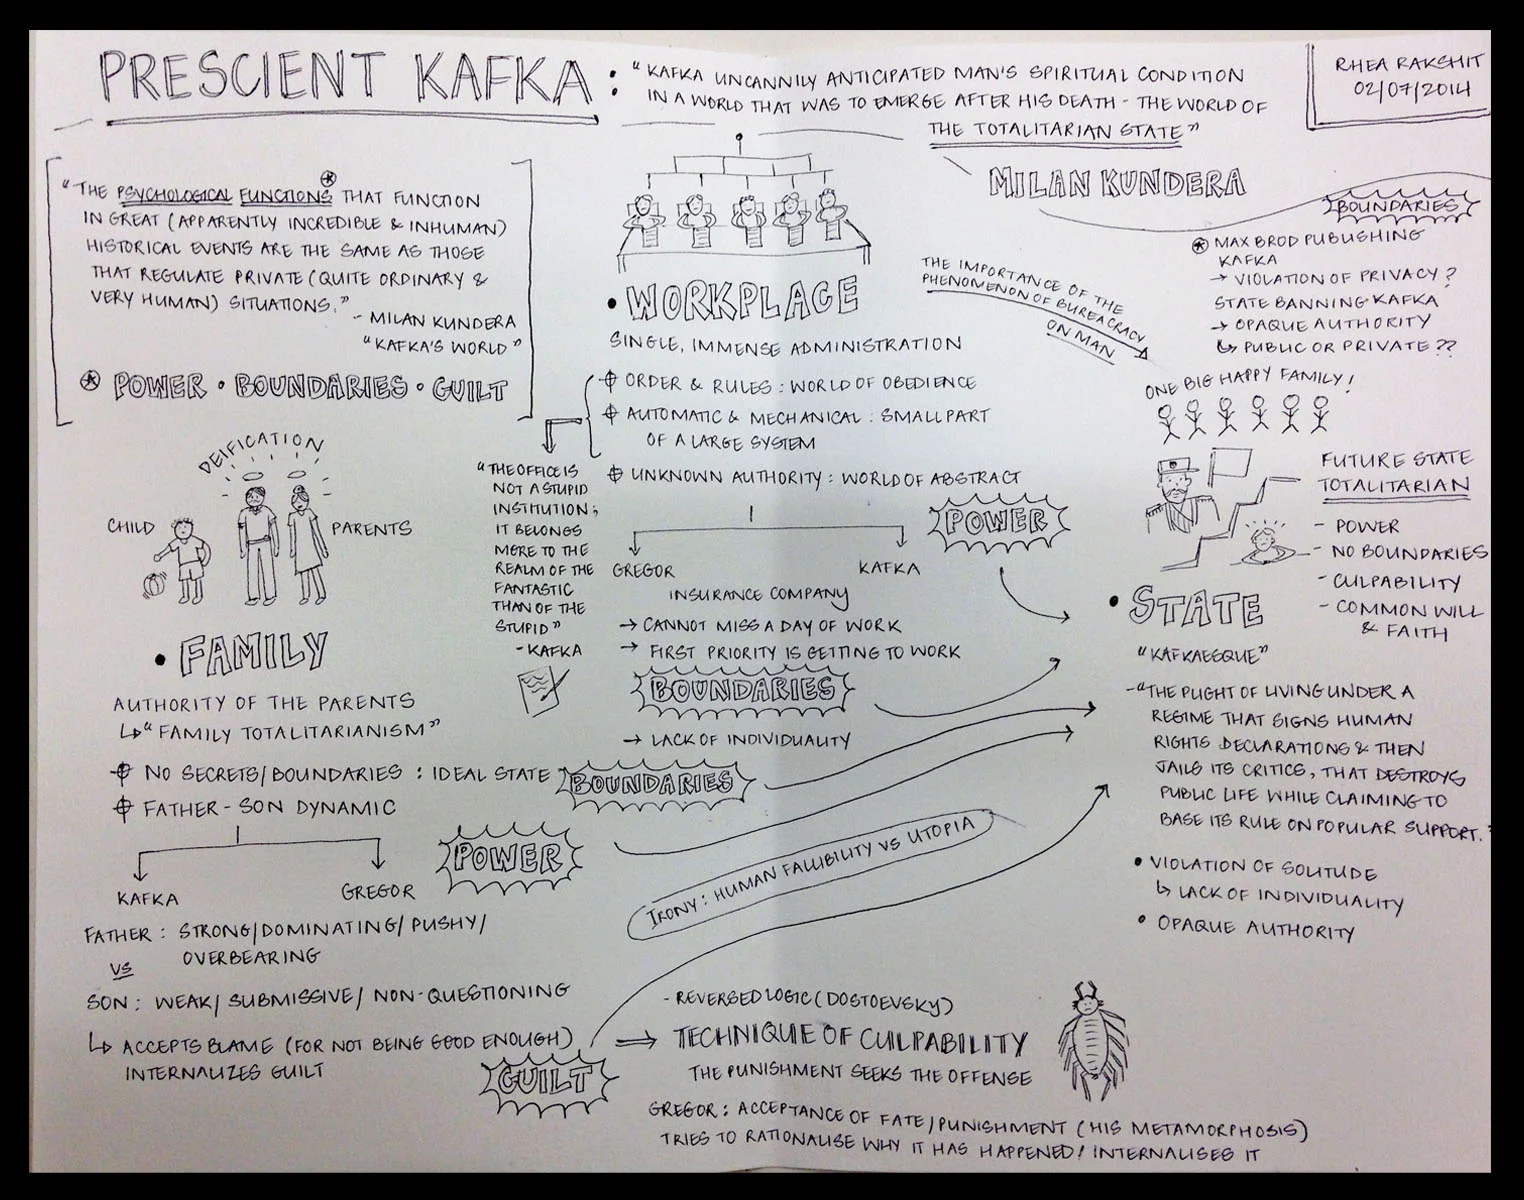 PRESCIENT KAFKA :
"KAFKA UNCANNILY ANTICIPATED MAN'S SPIRITUAL CONDITION
IN A WORLD THAT WAS TO EMERGE AFTER HIS DEATH - THE WORLD OF
THE TOTALITARIAN STATE"
MILAN KUNDERA
RHEA RAKSHIT
02/07/2014
"THE PSYCHOLOGICAL FUNCTIONS THAT FUNCTION
IN GREAT (APPARENTLY INCREDIBLE & INHUMAN)
HISTORICAL EVENTS ARE THE SAME AS THOSE
THAT REGULATE PRIVATE (QUITE ORDINARY &
VERY HUMAN) SITUATIONS."
- MILAN KUNDERA
"KAFKA'S WORLD"
POWER · BOUNDARIES · GUILT
DEIFICATION
CHILD
PARENTS
• FAMILY
AUTHORITY OF THE PARENTS
↳ "FAMILY TOTALITARIANISM"
NO SECRETS/BOUNDARIES : IDEAL STATE
BOUNDARIES
FATHER - SON DYNAMIC
POWER
KAFKA
GREGOR
FATHER : STRONG/DOMINATING/PUSHY/
OVERBEARING
VS
SON : WEAK/ SUBMISSIVE/ NON-QUESTIONING
↳ ACCEPTS BLAME (FOR NOT BEING GOOD ENOUGH)
INTERNALIZES GUILT
GUILT
• WORKPLACE
SINGLE, IMMENSE ADMINISTRATION
ORDER & RULES : WORLD OF OBEDIENCE
AUTOMATIC & MECHANICAL : SMALL PART
OF A LARGE SYSTEM
UNKNOWN AUTHORITY : WORLD OF ABSTRACT
POWER
"THE OFFICE IS
NOT A STUPID
INSTITUTION;
IT BELONGS
MORE TO THE
REALM OF THE
FANTASTIC
THAN OF THE
STUPID"
- KAFKA
GREGOR
KAFKA
INSURANCE COMPANY
→ CANNOT MISS A DAY OF WORK
→ FIRST PRIORITY IS GETTING TO WORK
BOUNDARIES
→ LACK OF INDIVIDUALITY
IRONY : HUMAN FALLIBILITY VS UTOPIA
- REVERSED LOGIC (DOSTOEVSKY)
⇒ TECHNIQUE OF CULPABILITY
THE PUNISHMENT SEEKS THE OFFENSE
GREGOR : ACCEPTANCE OF FATE/PUNISHMENT (HIS METAMORPHOSIS)
TRIES TO RATIONALISE WHY IT HAS HAPPENED! INTERNALISES IT
THE IMPORTANCE OF THE
PHENOMENON OF BUREACRACY
ON MAN
BOUNDARIES
MAX BROD PUBLISHING
KAFKA
→ VIOLATION OF PRIVACY?
STATE BANNING KAFKA
→ OPAQUE AUTHORITY
↳ PUBLIC OR PRIVATE??
ONE BIG HAPPY FAMILY!
FUTURE STATE
TOTALITARIAN
- POWER
- NO BOUNDARIES
- CULPABILITY
- COMMON WILL
& FAITH
• STATE
"KAFKAESQUE"
- "THE PLIGHT OF LIVING UNDER A
REGIME THAT SIGNS HUMAN
RIGHTS DECLARATIONS & THEN
JAILS ITS CRITICS, THAT DESTROYS
PUBLIC LIFE WHILE CLAIMING TO
BASE ITS RULE ON POPULAR SUPPORT."
• VIOLATION OF SOLITUDE
↳ LACK OF INDIVIDUALITY
• OPAQUE AUTHORITY